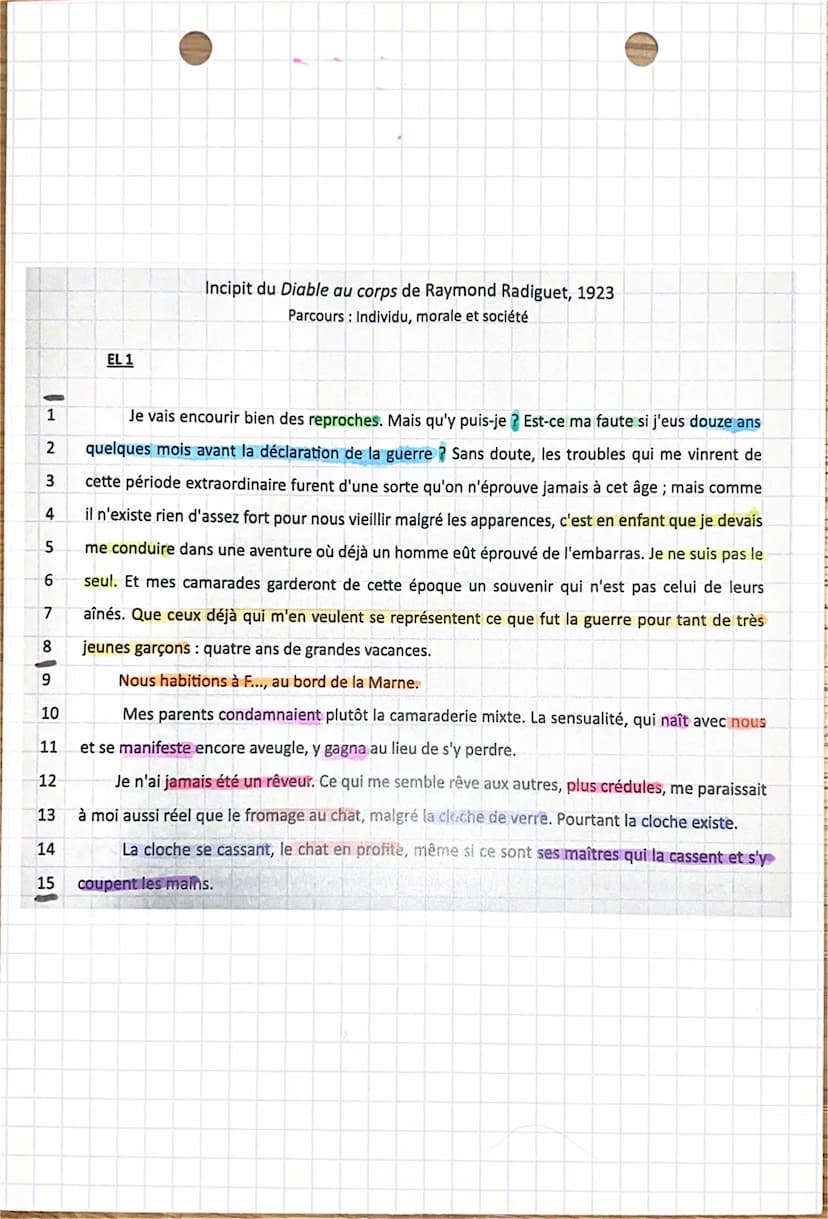 Incipit du Diable au corps de Raymond Radiguet, 1923
Parcours : Individu, morale et société
EL 1
1 Je vais encourir bien des reproches. Mais qu'y puis-je ? Est-ce ma faute si j'eus douze ans
2 quelques mois avant la déclaration de la guerre ? Sans doute, les troubles qui me vinrent de
3 cette période extraordinaire furent d'une sorte qu'on n'éprouve jamais à cet âge ; mais comme
4 il n'existe rien d'assez fort pour nous vieillir malgré les apparences, c'est en enfant que je devais
5 me conduire dans une aventure où déjà un homme eût éprouvé de l'embarras. Je ne suis pas le
6 seul. Et mes camarades garderont de cette époque un souvenir qui n'est pas celui de leurs
7 aînés. Que ceux déjà qui m'en veulent se représentent ce que fut la guerre pour tant de très
8 jeunes garçons : quatre ans de grandes vacances.
9 Nous habitions à F..., au bord de la Marne.
10 Mes parents condamnaient plutôt la camaraderie mixte. La sensualité, qui naît avec nous
11 et se manifeste encore aveugle, y gagna au lieu de s'y perdre.
12 Je n'ai jamais été un rêveur. Ce qui me semble rêve aux autres, plus crédules, me paraissait
13 à moi aussi réel que le fromage au chat, malgré la cloche de verre. Pourtant la cloche existe.
14 La cloche se cassant, le chat en profite, même si ce sont ses maîtres qui la cassent et s'y
15 coupent les mains.